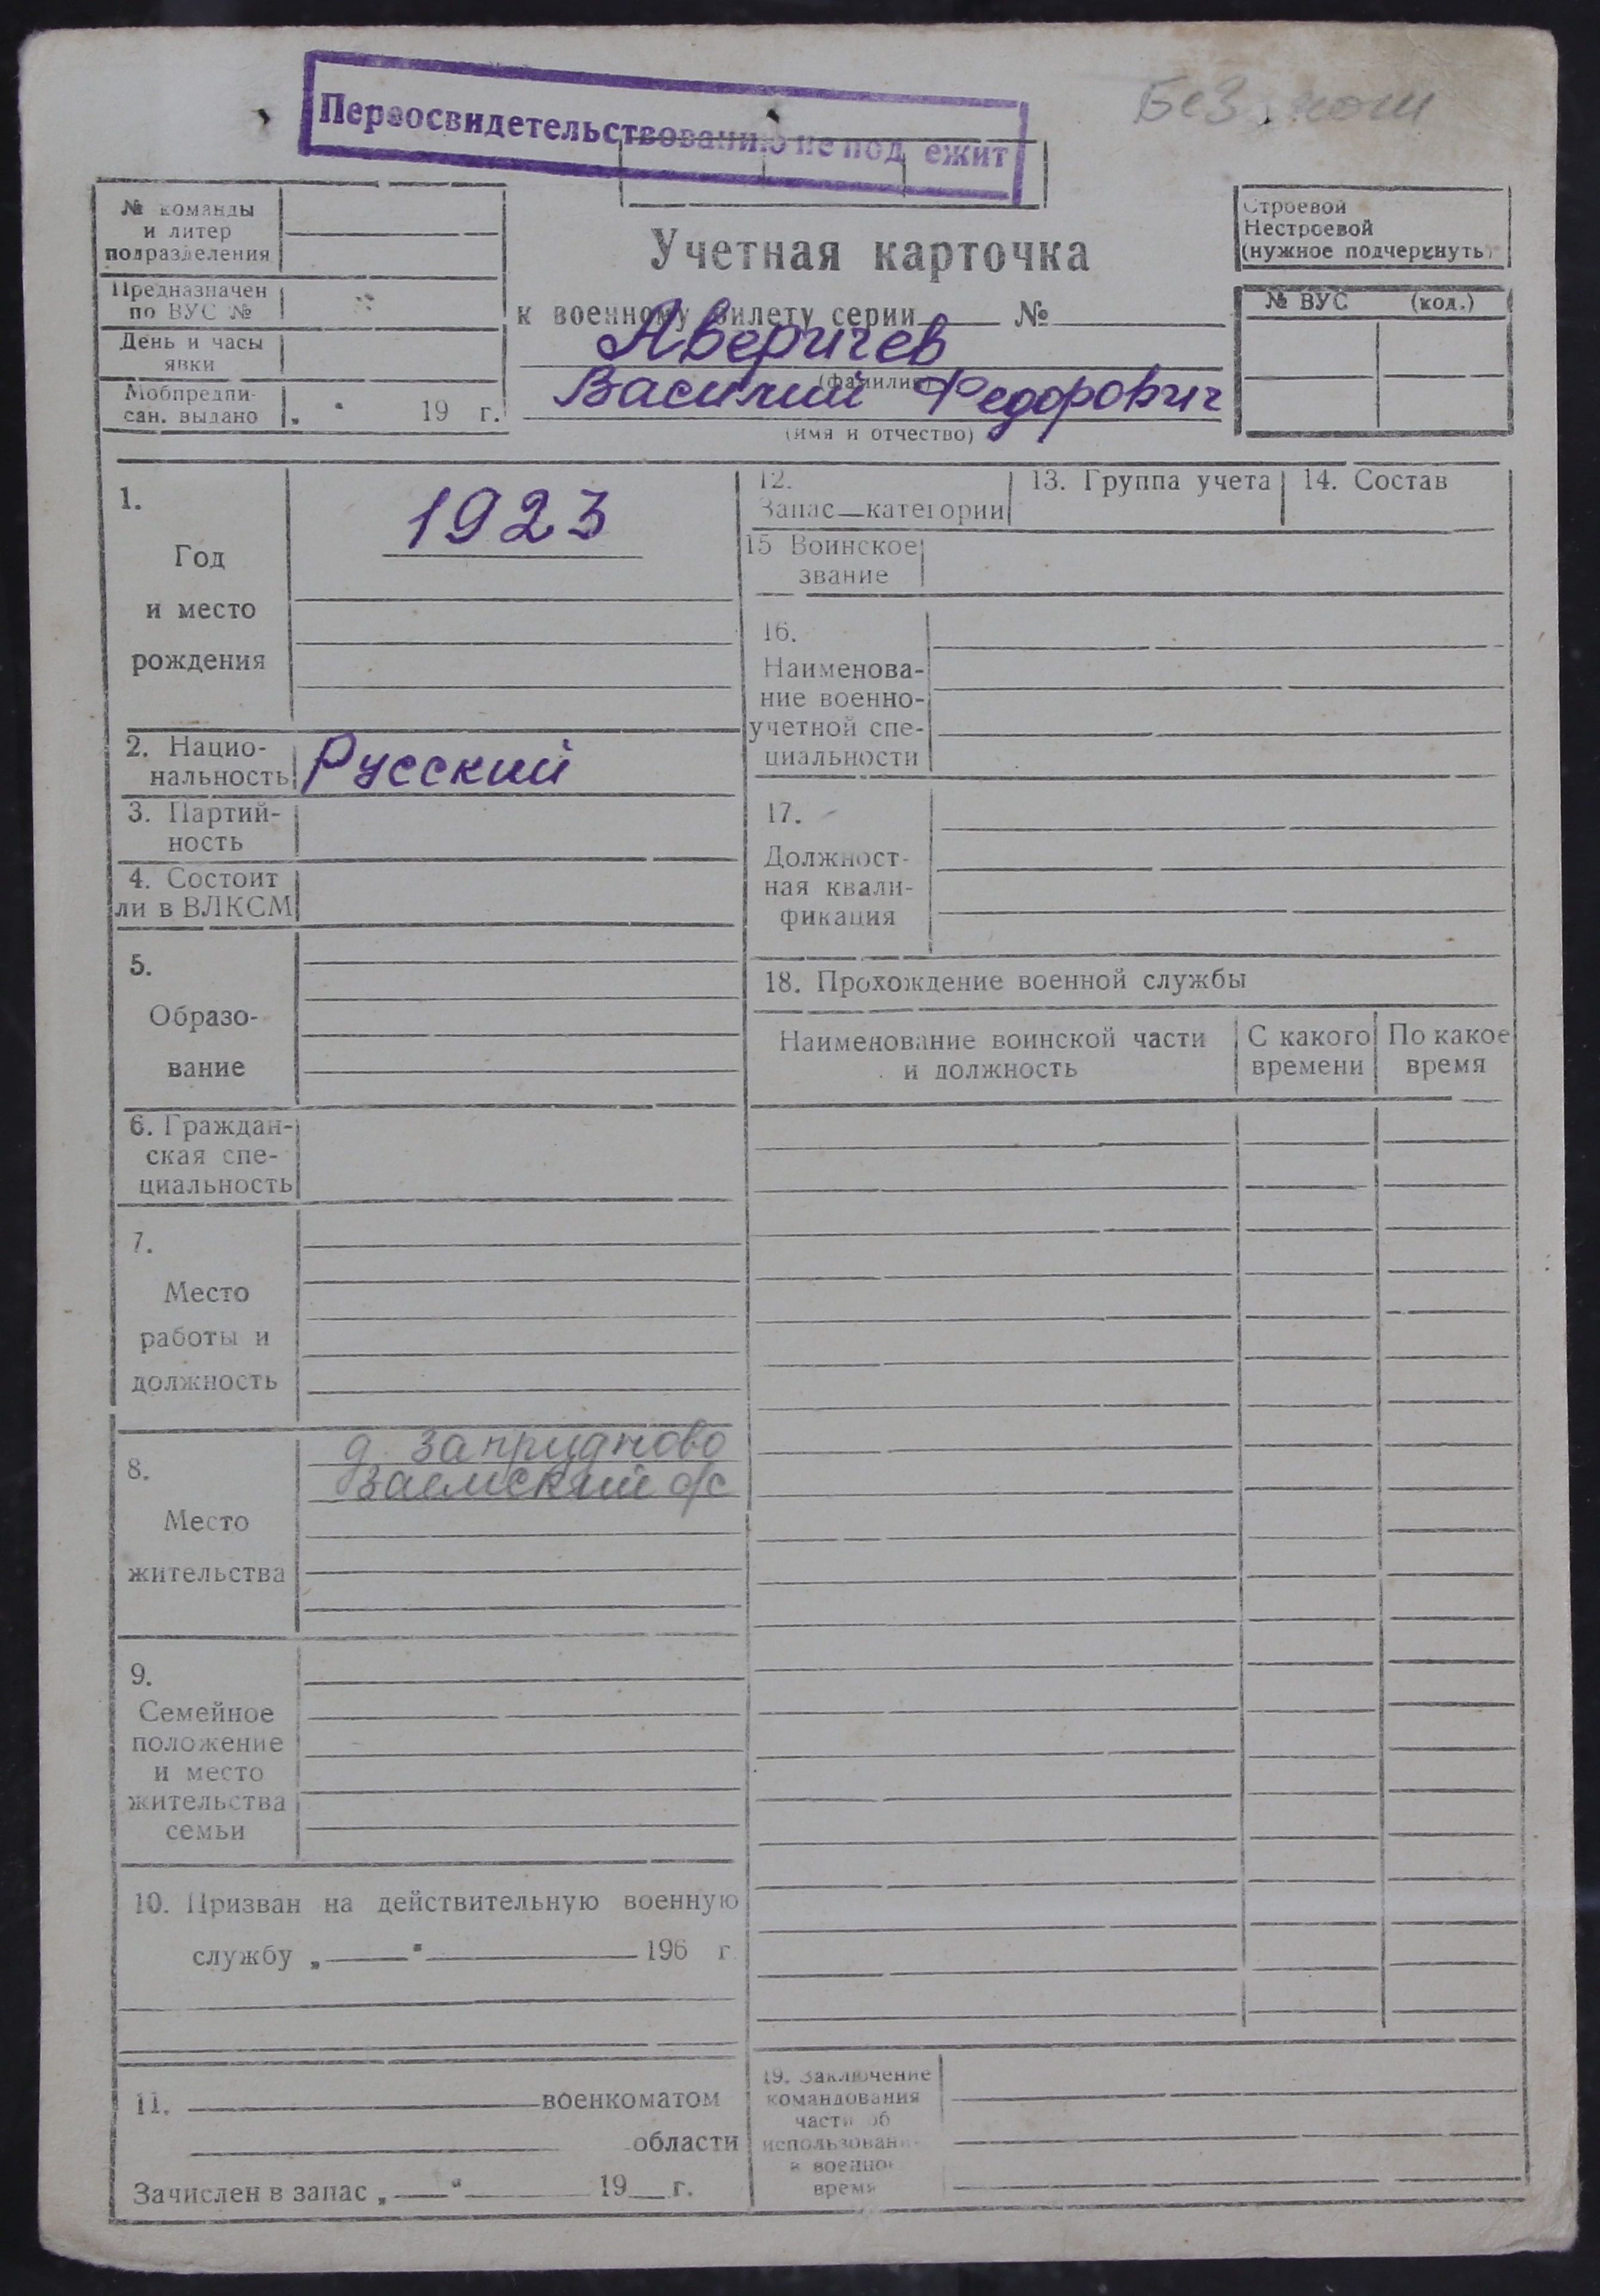 Без ноги
Переосвидетельствованию не под ежит
№ команды
и литер
подразделения
Предназначен
по ВУС №
День и часы
явки
Мобпредпи-
сан. выдано „ “ 19 г.
Учетная карточка
к военному билету серии №
Аверичев
(фамилия)
Василий Федорович
(имя и отчество)
Строевой
Нестроевой
(нужное подчеркнуть)
№ ВУС (код.)
1.
Год
и место
рождения
1923
2. Нацио-
нальность Русский
3. Партий-
ность
4. Состоит
ли в ВЛКСМ
5.
Образо-
вание
6. Граждан-
ская спе-
циальность
7.
Место
работы и
должность
8.
Место
жительства
д. Запрудново
Заемский с/с
9.
Семейное
положение
и место
жительства
семьи
10. Призван на действительную военную
службу „ “ 196 г.
11. военкоматом
области
Зачислен в запас „ “ 19 г.
12.
Запас—категории
13. Группа учета
14. Состав
15 Воинское
звание
16.
Наименова-
ние военно-
учетной спе-
циальности
17.
Должност-
ная квали-
фикация
18. Прохождение военной службы
Наименование воинской части
и должность
С какого
времени
По какое
время
19. Заключение
командования
части об
использовани
в военно
время